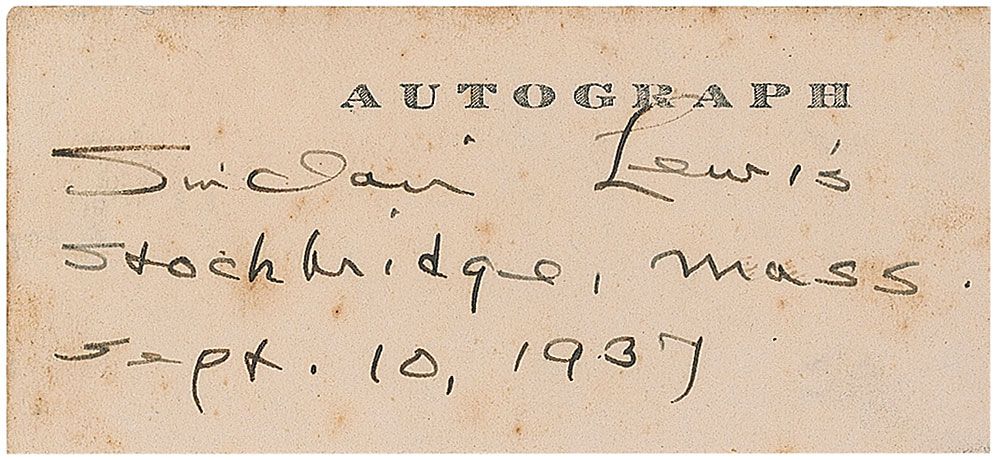 AUTOGRAPH
Sinclair Lewis
Stockbridge, Mass.
Sept. 10, 1937